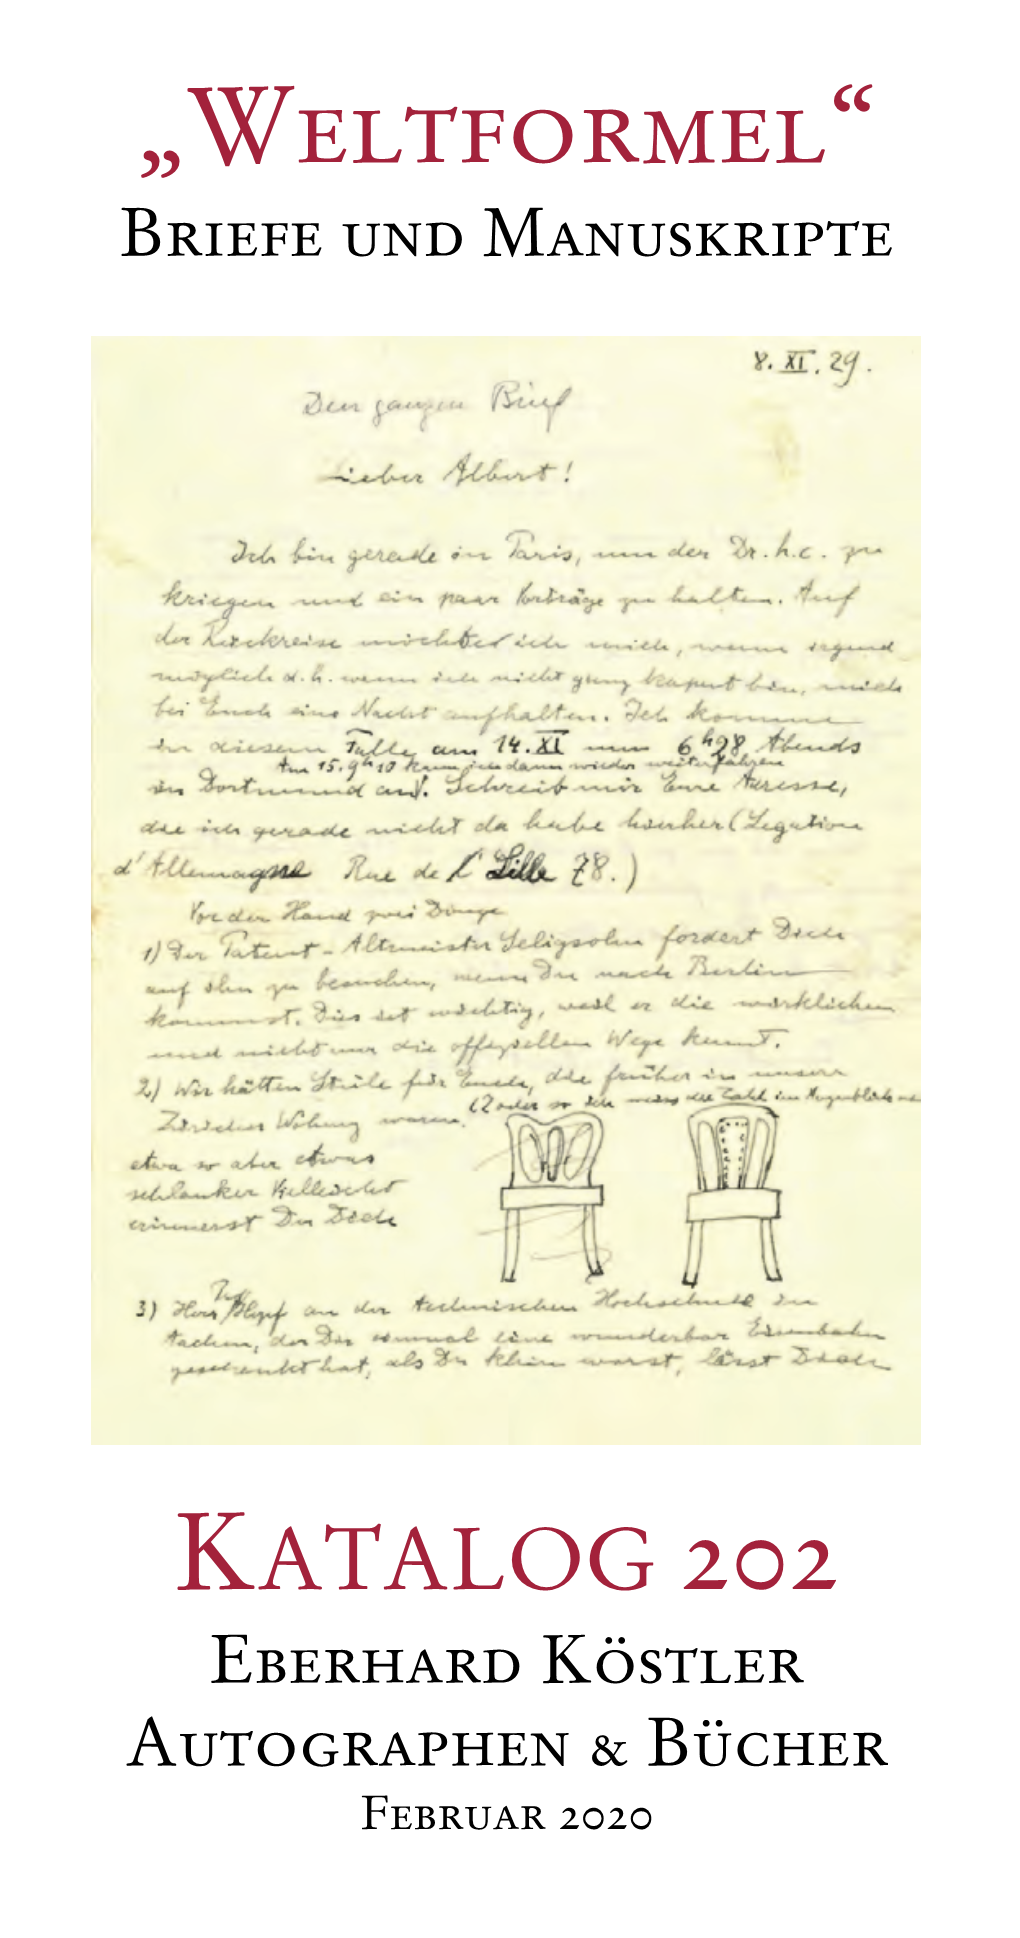 „Weltformel“
Briefe und Manuskripte
8. XI. 29.
Den ganzen Brief
Lieber Albert!
Ich bin gerade in Paris, um den Dr. h.c. zu
kriegen und ein paar Vorträge zu halten. Auf
der Rückreise möchte ich mich, wenn irgend
möglich d.h. wenn ich nicht ganz kaput bin, mich
bei Euch eine Nacht aufhalten. Ich komme
in diesem Falle am 14. XI um 6h28 Abends
Am 15. 9h10 kann ich dann wieder weiterfahren
in Dortmund an. Schreib mir Eure Adresse,
die ich gerade nicht da habe hierher (Legation
d'Allemagne Rue de Lille 78.)
Vor der Hand zwei Dinge
1) Der Patent-Altmeister Seligsohn fordert Dich
auf ihn zu besuchen, wenn Du nach Berlin
kommst. Dies ist wichtig, weil er die wirklichen
und nicht nur die offiziellen Wege kennt.
2) Wir hätten Stüle für Euch, die früher in unserer
(2 oder so ich weiss die Zahl im Augenblick
Züricher Wohnung waren.
etwa so aber etwas
schlanker Vielleicht
erinnerst Du Dich
3) Herr Prof Hopf an der technischen Hochschule in
Aachen, der Dir einmal eine wunderbar Eisenbahn
geschenkt hat, als Du klein warst, lässt Dich
Katalog 202
Eberhard Köstler
Autographen & Bücher
Februar 2020